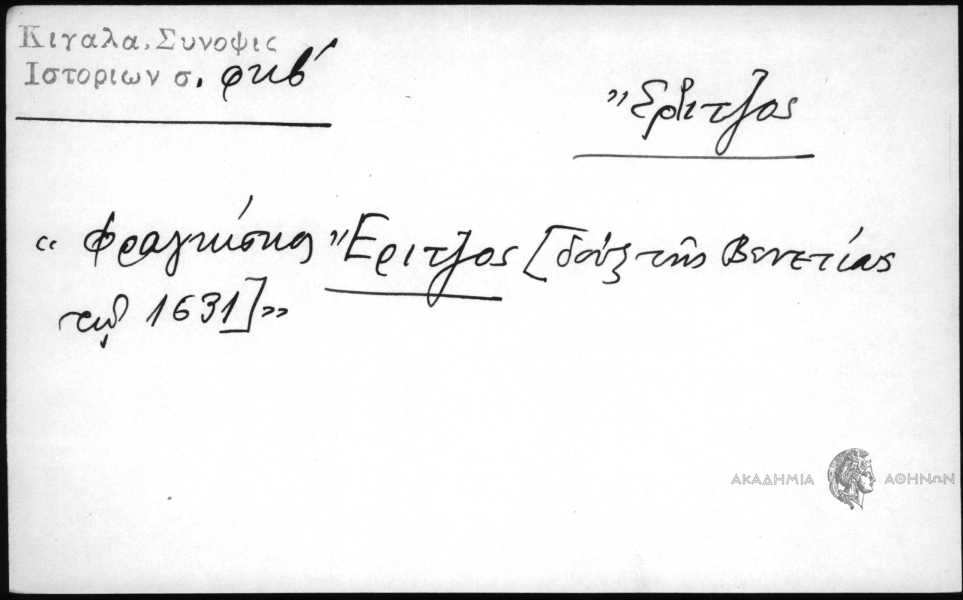 Κιγαλα, Συνοψις
Ιστοριων σ. φκβ´
Ἔριτζος
« Φραγκίσκος Ἔριτζος [δοὺξ τῆς Βενετίας
τῷ 1631]»
ΑΚΑΔΗΜΙΑ ΑΘΗΝΩΝ